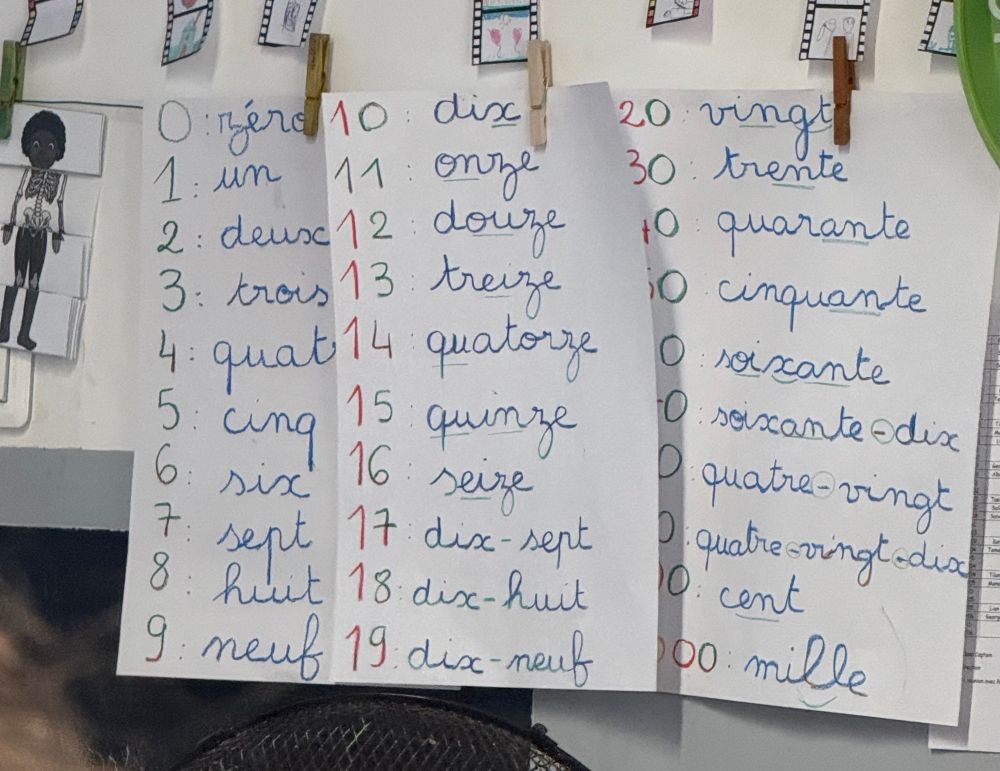 0 : zéro
1 : un
2 : deux
3 : trois
4 : quat
5 : cinq
6 : six
7 : sept
8 : huit
9 : neuf
10 : dix
11 : onze
12 : douze
13 : treize
14 : quatorze
15 : quinze
16 : seize
17 : dix-sept
18 : dix-huit
19 : dix-neuf
20 : vingt
30 : trente
0 : quarante
0 : cinquante
0 : soixante
0 : soixante-dix
0 : quatre-vingt
0 : quatre-vingt-dix
00 : cent
000 : mille